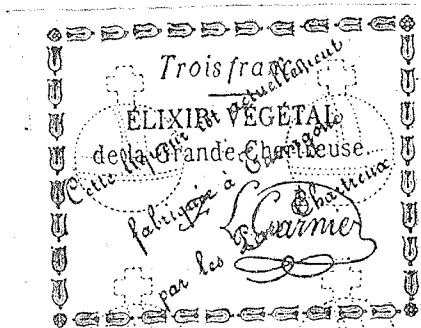 Trois francs
ÉLIXIR VÉGÉTAL
de la Grande Chartreuse.
L. Garnier
Cette liqueur est actuellement
fabriquée à Tarragone
par les Pères Chartreux